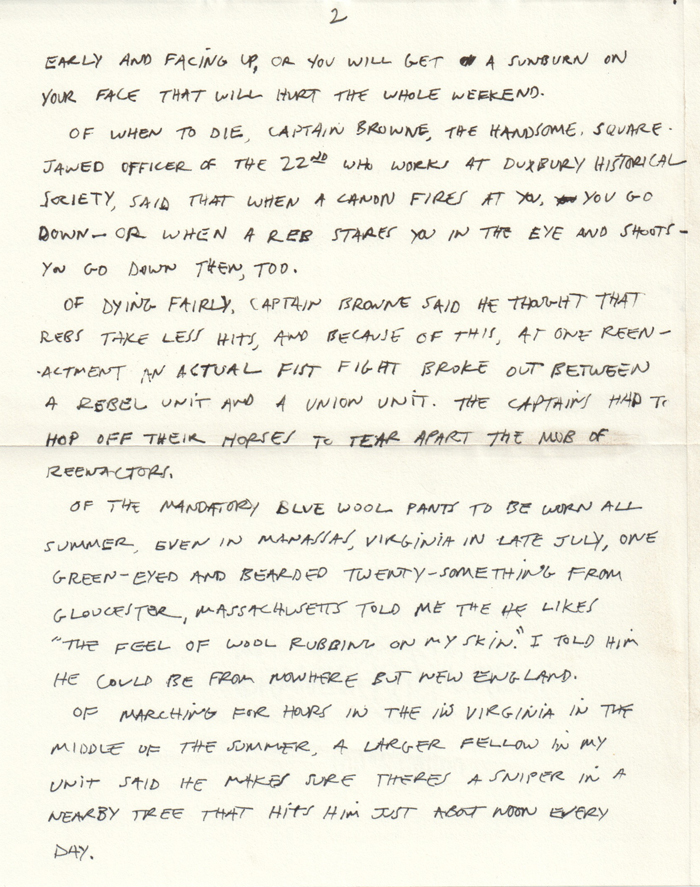 2
EARLY AND FACING UP, OR YOU WILL GET A SUNBURN ON
YOUR FACE THAT WILL HURT THE WHOLE WEEKEND.
OF WHEN TO DIE, CAPTAIN BROWNE, THE HANDSOME, SQUARE-
JAWED OFFICER OF THE 22ND WHO WORKS AT DUXBURY HISTORICAL
SOCIETY, SAID THAT WHEN A CANON FIRES AT YOU, YOU GO
DOWN— OR WHEN A REB STARES YOU IN THE EYE AND SHOOTS—
YOU GO DOWN THEN, TOO.
OF DYING FAIRLY, CAPTAIN BROWNE SAID HE THOUGHT THAT
REBS TAKE LESS HITS, AND BECAUSE OF THIS, AT ONE REEN-
ACTMENT AN ACTUAL FIST FIGHT BROKE OUT BETWEEN
A REBEL UNIT AND A UNION UNIT. THE CAPTAINS HAD TO
HOP OFF THEIR HORSES TO TEAR APART THE MOB OF
REENACTORS.
OF THE MANDATORY BLUE WOOL PANTS TO BE WORN ALL
SUMMER, EVEN IN MANASSAS, VIRGINIA IN LATE JULY, ONE
GREEN-EYED AND BEARDED TWENTY-SOMETHING FROM
GLOUCESTER, MASSACHUSETTS TOLD ME THE HE LIKES
"THE FEEL OF WOOL RUBBING ON MY SKIN." I TOLD HIM
HE COULD BE FROM NOWHERE BUT NEW ENGLAND.
OF MARCHING FOR HOURS IN THE IN VIRGINIA IN THE
MIDDLE OF THE SUMMER, A LARGER FELLOW IN MY
UNIT SAID HE MAKES SURE THERES A SNIPER IN A
NEARBY TREE THAT HITS HIM JUST ABOUT NOON EVERY
DAY.